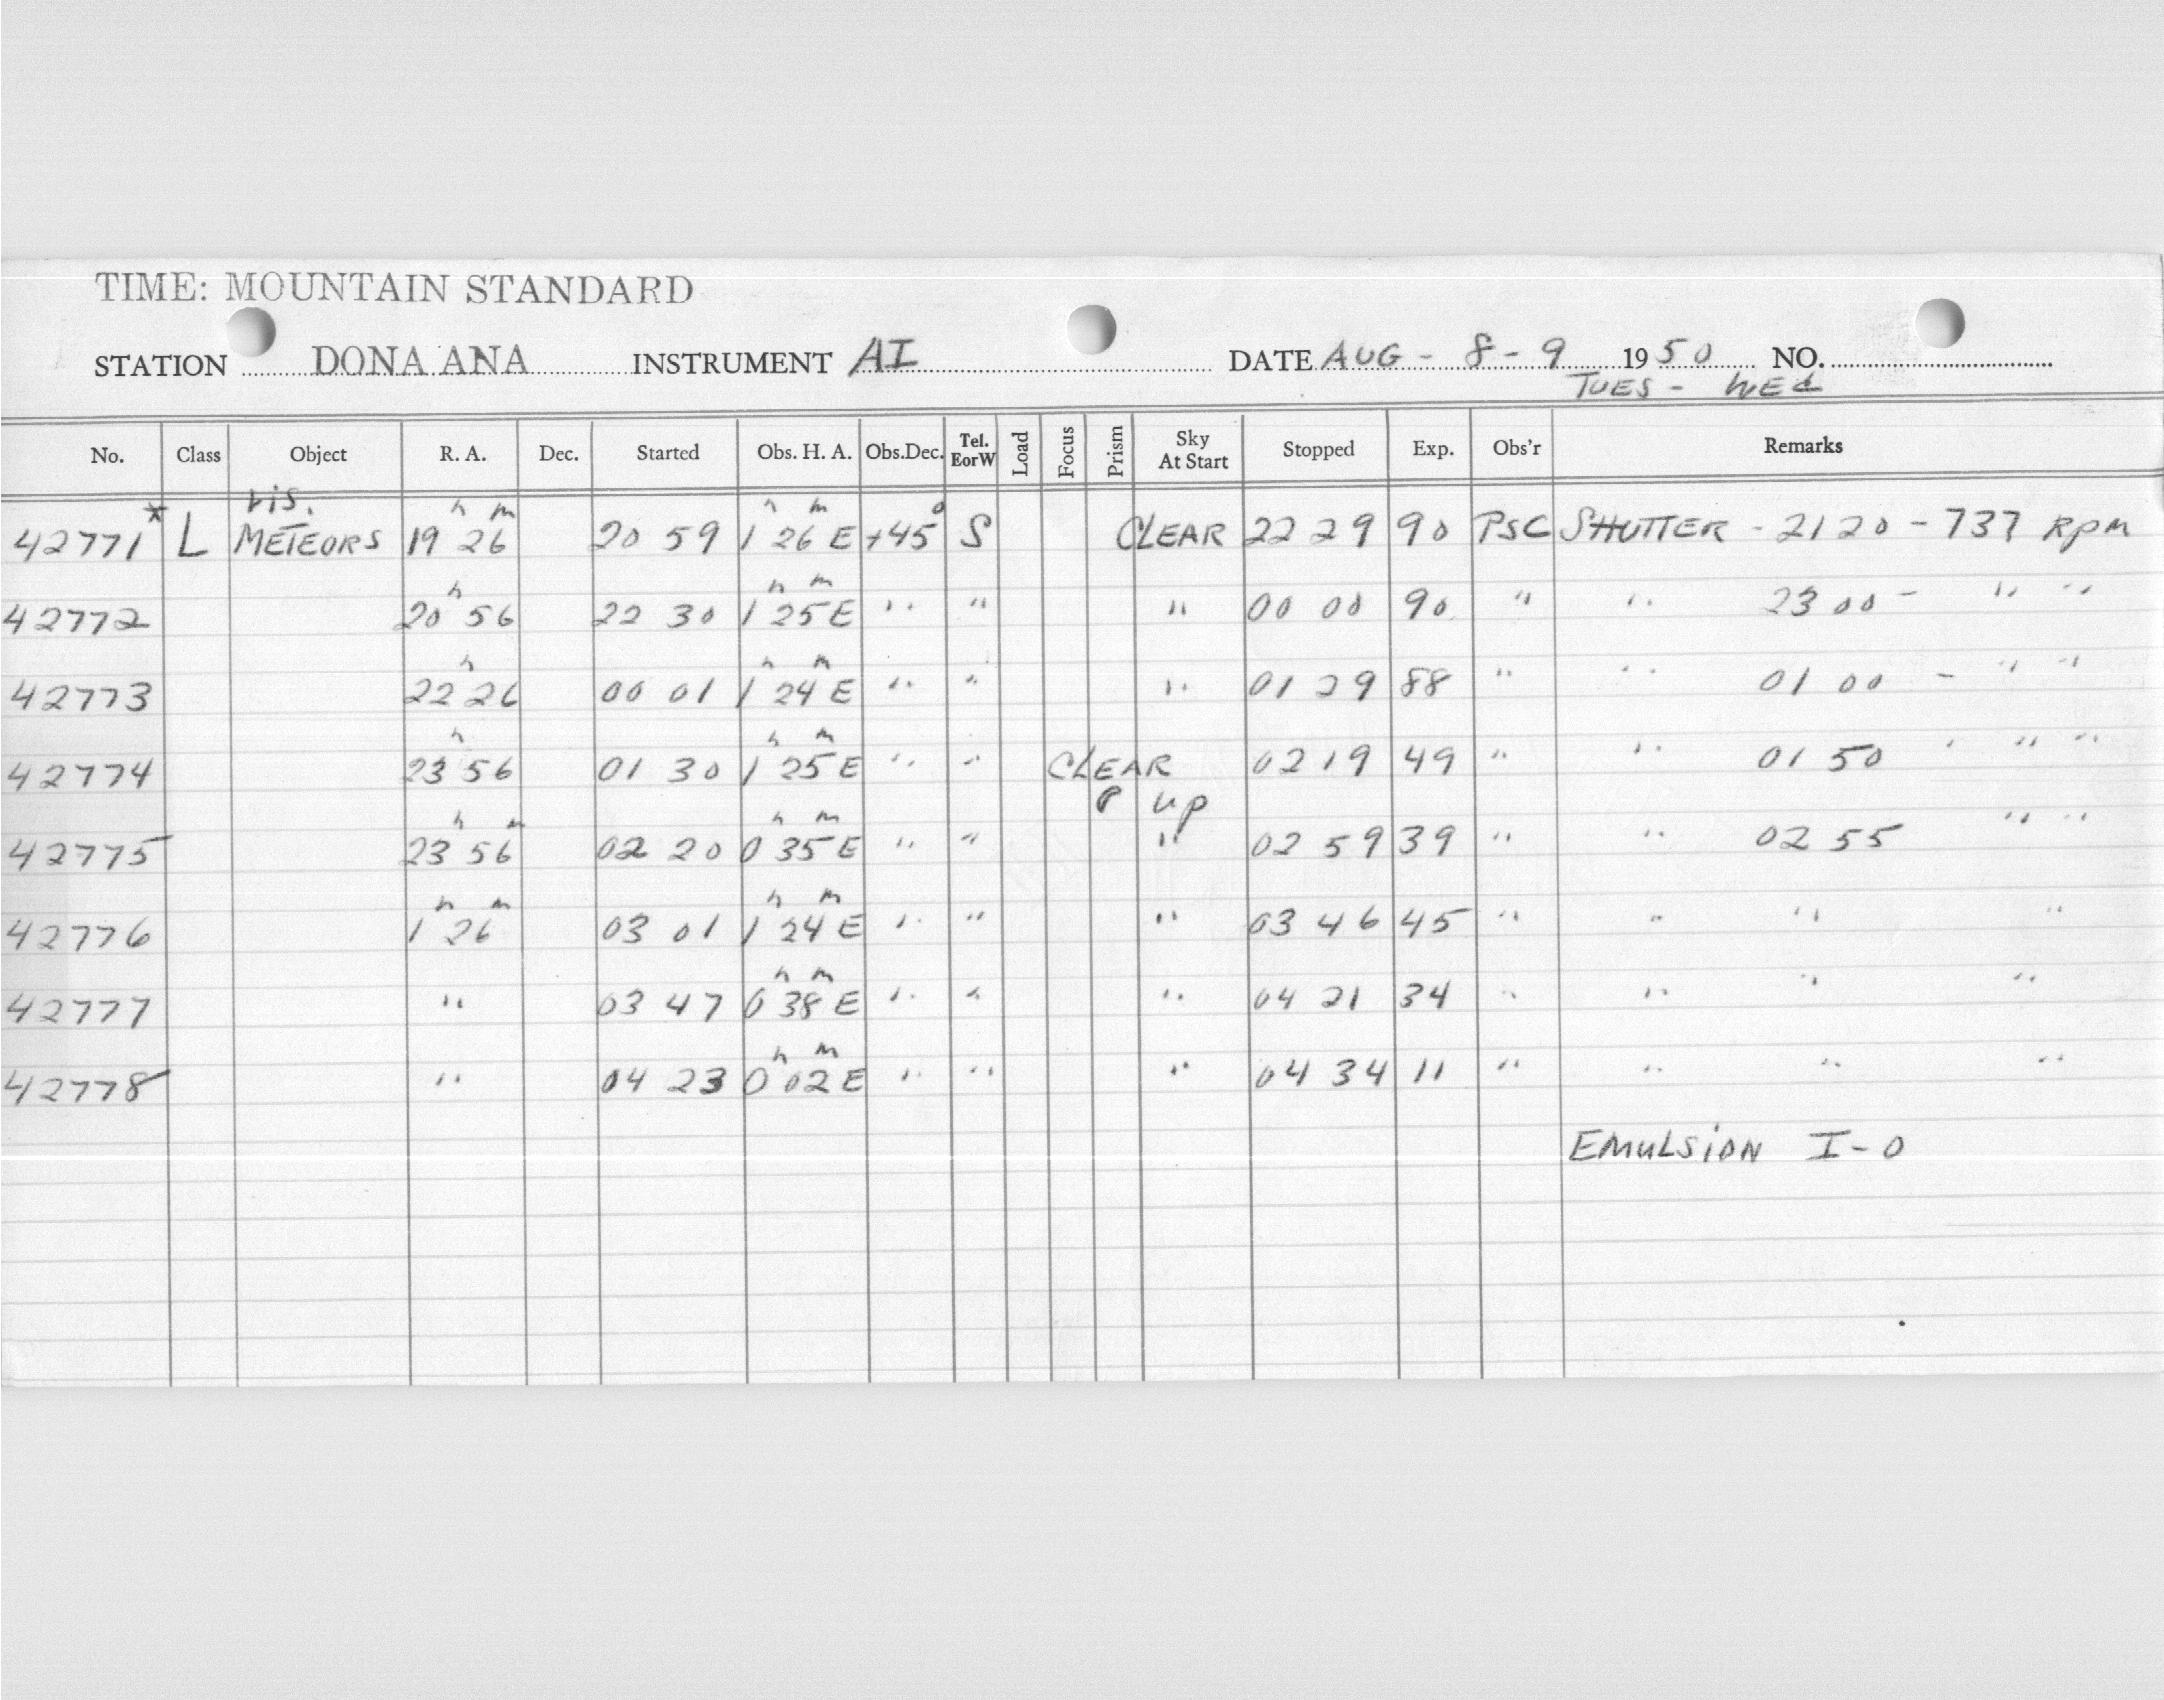 TIME: MOUNTAIN STANDARD
STATION DONA ANA INSTRUMENT AI DATE AUG - 8 - 9 1950 NO.
TUES - WEd
No. Class Object R. A. Dec. Started Obs. H. A. Obs.Dec. Tel. EorW Load Focus Prism Sky At Start Stopped Exp. Obs'r Remarks
42771* L vis. METEORS 19h 26m 20 59 1h 26m E +45° S CLEAR 22 29 90 PSC SHUTTER - 2120 - 737 RPM
42772 20h 56 22 30 1h 25m E " " " 00 00 90 " " 23 00 - " "
42773 22h 26 00 01 1h 24m E " " " 01 29 88 " " 01 00 - " "
42774 23h 56 01 30 1h 25m E " " CLEAR 02 19 49 " " 01 50 " " "
up
42775 23h 56m 02 20 0h 35m E " " " 02 59 39 " " 02 55 " "
42776 1h 26m 03 01 1h 24m E " " " 03 46 45 " " " "
42777 " 03 47 0h 38m E " " " 04 21 34 " " " "
42778 " 04 23 0h 02m E " " " 04 34 11 " " " "
EMULSION I-O